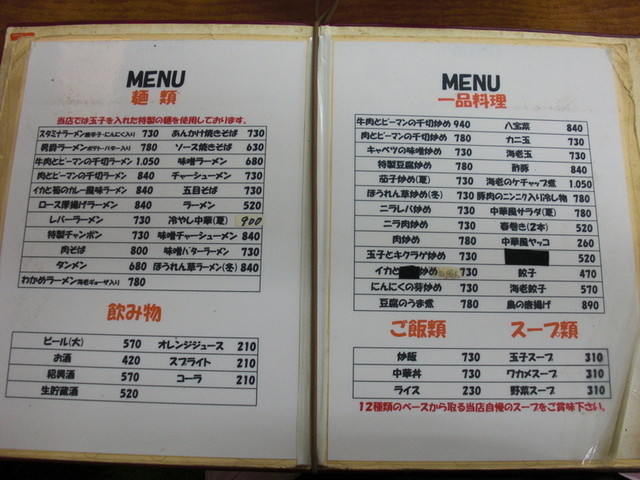 MENU
麺類
当店では玉子を入れた特製の麺を使用しております。
スタミナラーメン 唐辛子・にんにく入り 730 あんかけ焼きそば 730
男爵ラーメン ポテト・バター入り 780 ソース焼きそば 630
牛肉とピーマンの千切ラーメン 1.050 味噌ラーメン 680
肉とピーマンの千切ラーメン 840 チャーシューメン 730
イカと筍のカレー風味ラーメン 840 五目そば 730
ロース厚揚げラーメン 840 ラーメン 520
レバーラーメン 730 冷やし中華(夏) 900
特製チャンポン 730 味噌チャーシューメン 840
肉そば 800 味噌バターラーメン 730
タンメン 680 ほうれん草ラーメン(冬) 840
わかめラーメン 海老ギョーザ入り 780
飲み物
ビール(大) 570 オレンジジュース 210
お酒 420 スプライト 210
紹興酒 570 コーラ 210
生貯蔵酒 520
MENU
一品料理
牛肉とピーマンの千切炒め 940 八宝菜 840
肉とピーマンの千切炒め 780 カニ玉 730
キャベツの味噌炒め 730 海老玉 730
特製豆腐炒め 780 酢豚 840
茄子炒め(夏) 730 海老のケチャップ煮 1.050
ほうれん草炒め(冬) 730 豚肉のニンニク入り冷し物 780
ニラレバ炒め 730 中華風サラダ(夏) 780
ニラ肉炒め 730 春巻き(2本) 520
肉炒め 780 中華風ヤッコ 260
玉子とキクラゲ炒め 730 520
イカと 炒め 730 餃子 470
にんにくの芽炒め 730 海老餃子 570
豆腐のうま煮 780 鳥の唐揚げ 890
ご飯類 スープ類
炒飯 730 玉子スープ 310
中華丼 730 ワカメスープ 310
ライス 230 野菜スープ 310
12種類のベースから取る当店自慢のスープをご賞味下さい。